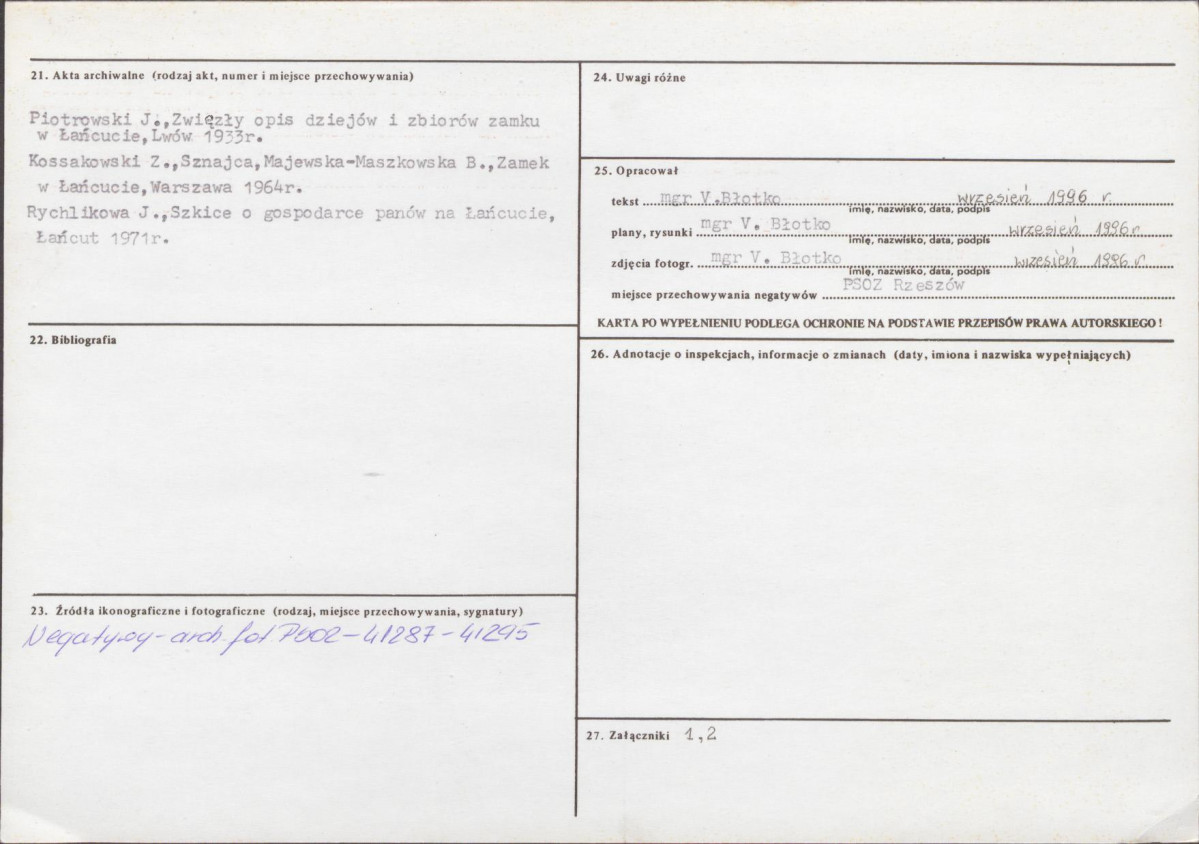 21. Akta archiwalne (rodzaj akt, numer i miejsce przechowywania)
Piotrowski J.,Zwięzły opis dziejów i zbiorów zamku
w Łańcucie,Lwów 1933r.
Kossakowski Z.,Sznajca,Majewska-Maszkowska B.,Zamek
w Łańcucie,Warszawa 1964r.
Rychlikowa J.,Szkice o gospodarce panów na Łańcucie,
Łańcut 1971r.
22. Bibliografia
23. Źródła ikonograficzne i fotograficzne (rodzaj, miejsce przechowywania, sygnatury)
Negatywy - arch. fot PSOZ - 41287 - 41295
24. Uwagi różne
25. Opracował
tekst mgr V.Błotko wrzesień 1996 r.
imię, nazwisko, data, podpis
plany, rysunki mgr V. Błotko wrzesień 1996 r.
imię, nazwisko, data, podpis
zdjęcia fotogr. mgr V. Błotko wrzesień 1996 r.
imię, nazwisko, data, podpis
miejsce przechowywania negatywów PSOZ Rzeszów
KARTA PO WYPEŁNIENIU PODLEGA OCHRONIE NA PODSTAWIE PRZEPISÓW PRAWA AUTORSKIEGO !
26. Adnotacje o inspekcjach, informacje o zmianach (daty, imiona i nazwiska wypełniających)
27. Załączniki 1,2